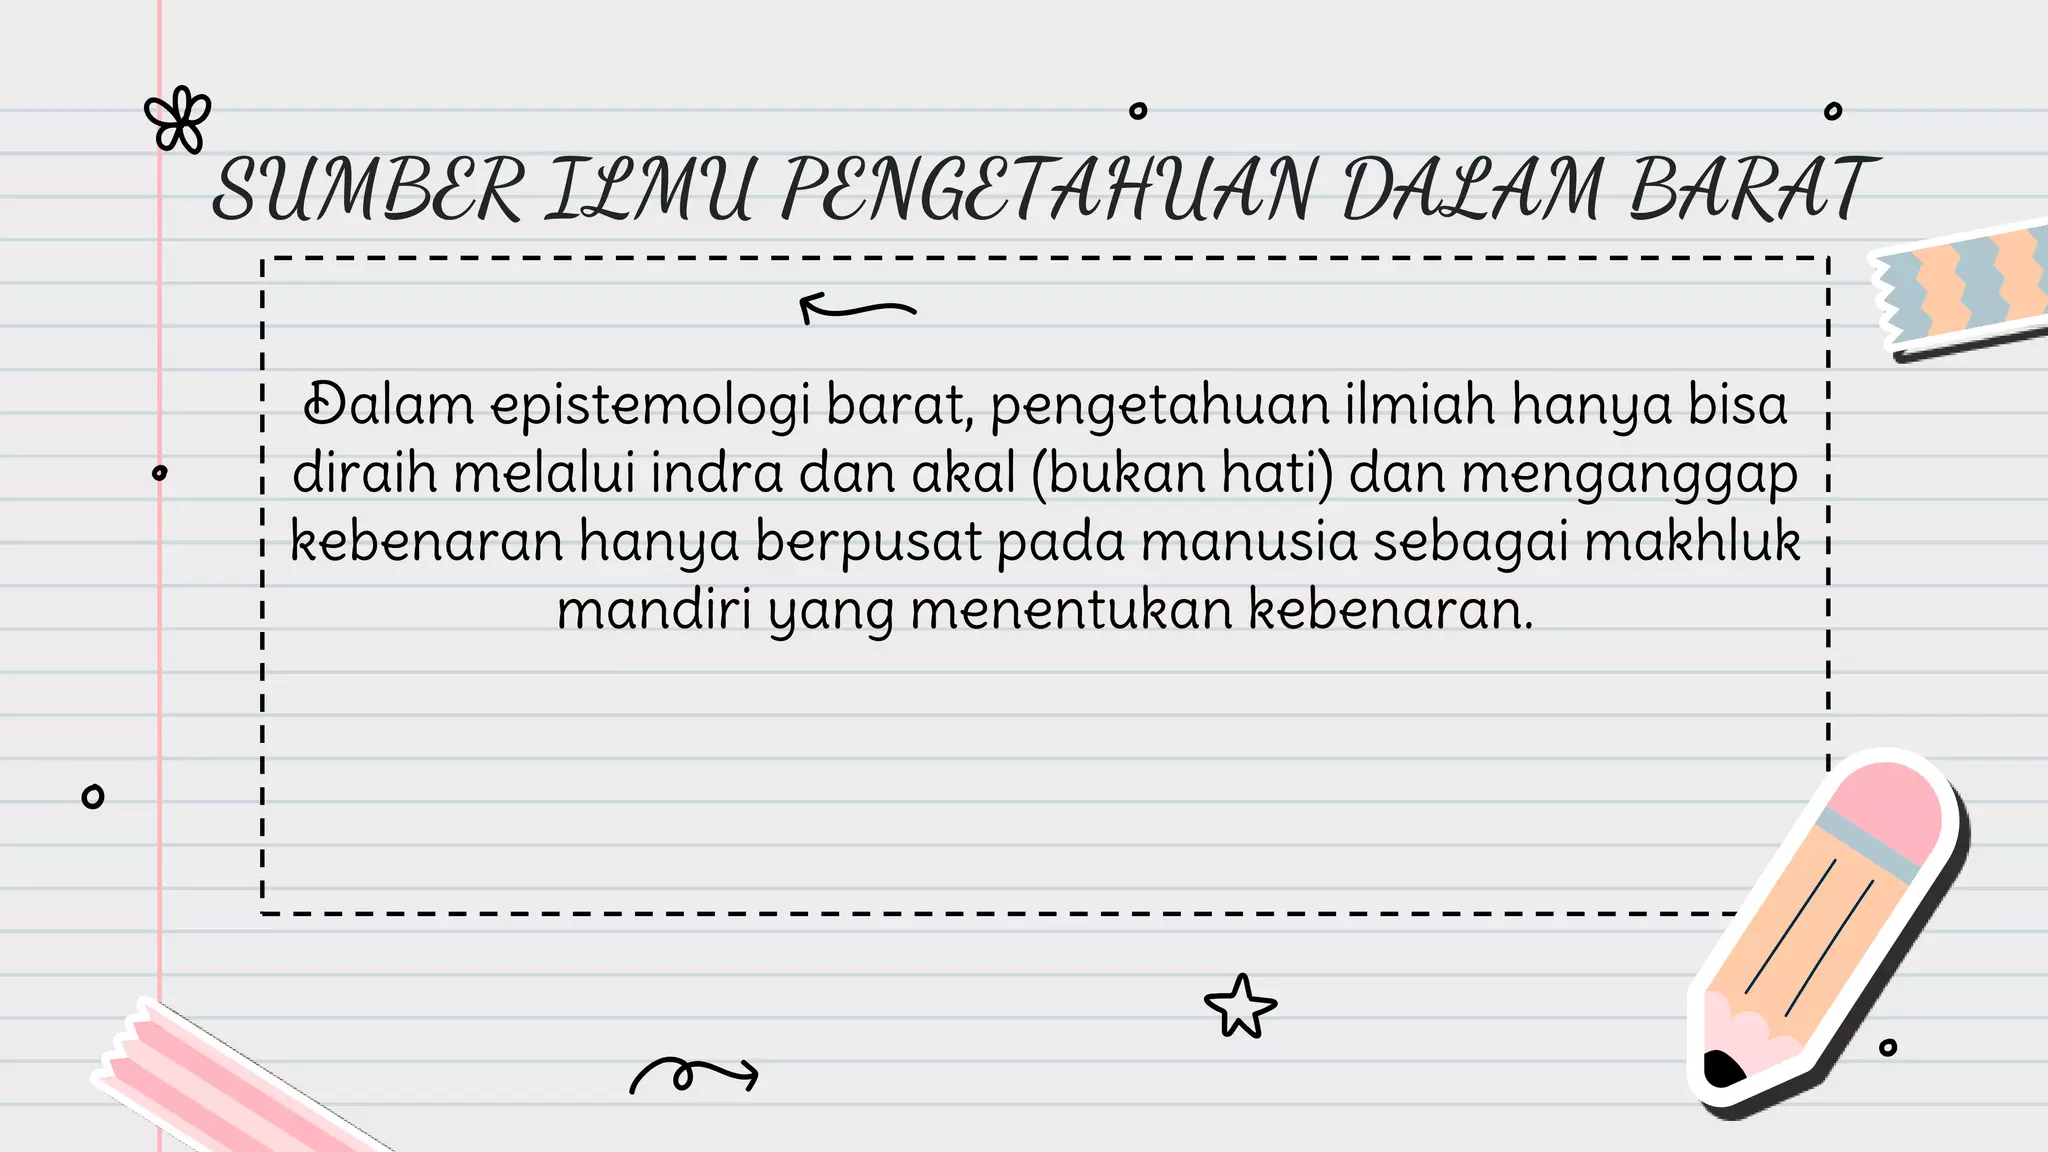 SUMBER ILMU PENGETAHUAN DALAM BARAT
Dalam epistemologi barat, pengetahuan ilmiah hanya bisa
diraih melalui indra dan akal (bukan hati) dan menganggap
kebenaran hanya berpusat pada manusia sebagai makhluk
mandiri yang menentukan kebenaran.